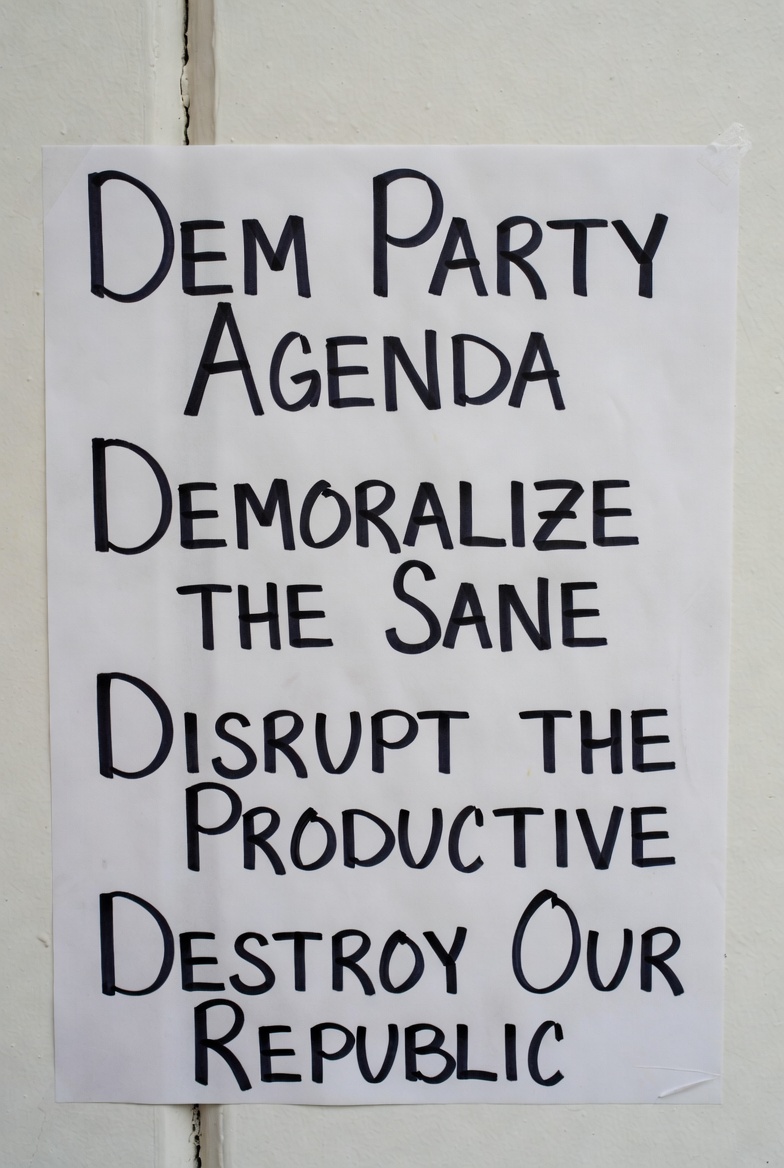 DEM PARTY
AGENDA
DEMORALIZE
THE SANE
DISRUPT THE
PRODUCTIVE
DESTROY OUR
REPUBLIC